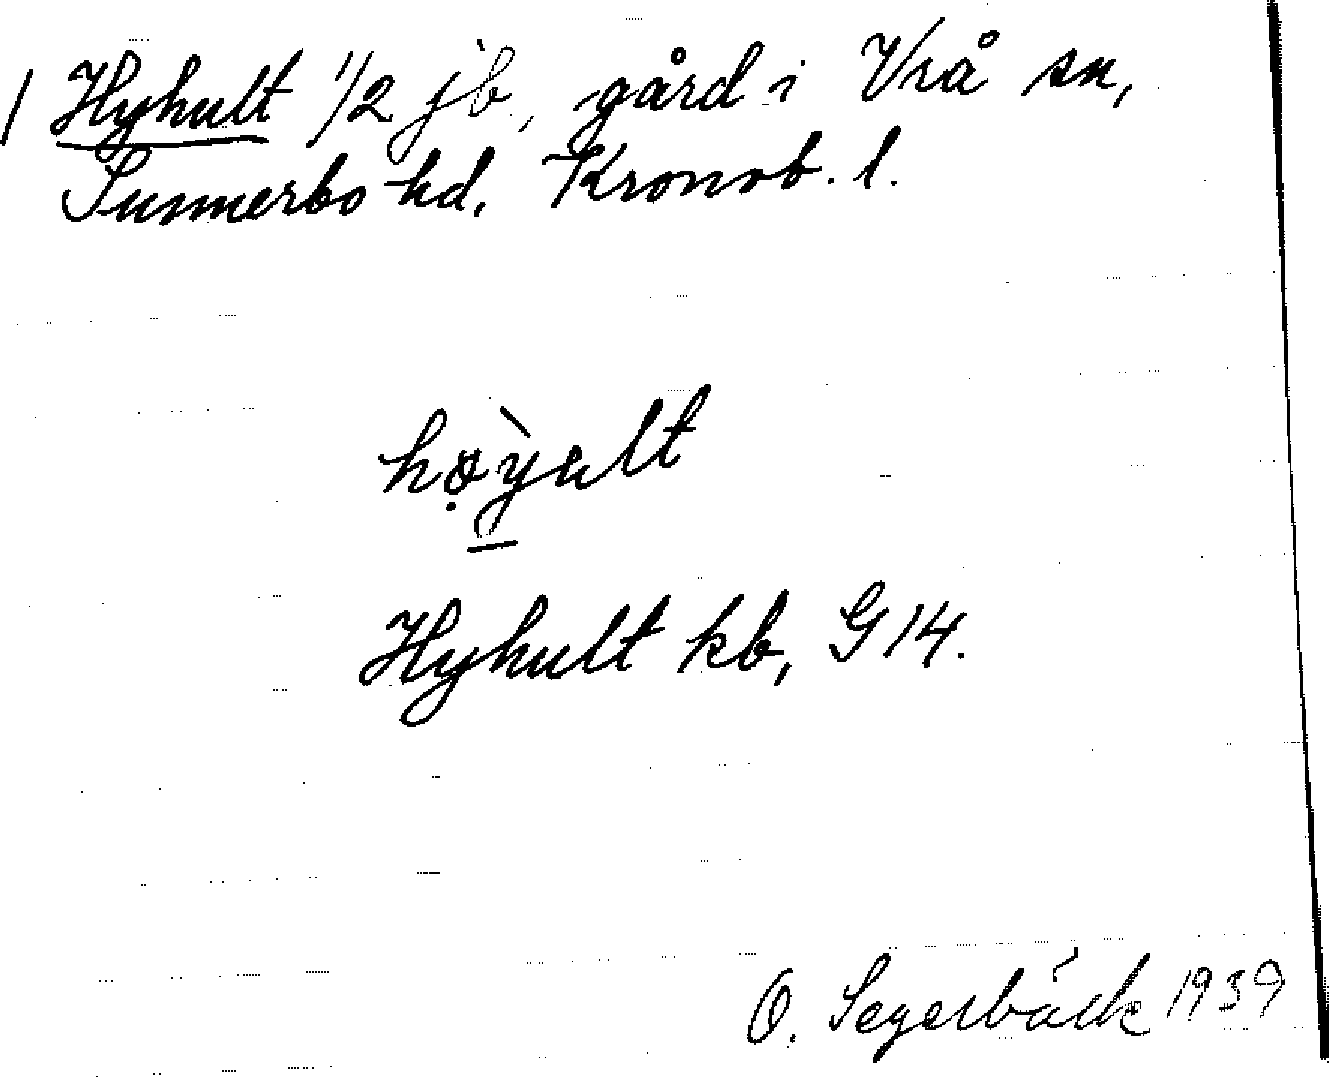 / Hyhult 1/2 jb, gård i Vrå sn,
Sunnerbo hd, Kronob. l.
hø̣̀yult
Hyhult kb, G 14.
O. Segerbäck 1939